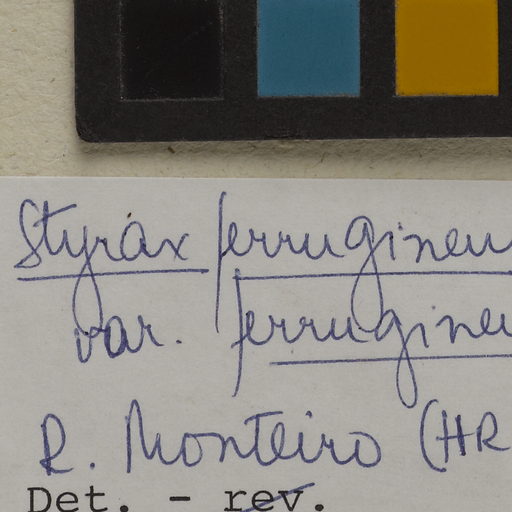 Styrax ferrugineu
var. ferrugineu
R. Monteiro (HR
Det. - rev.